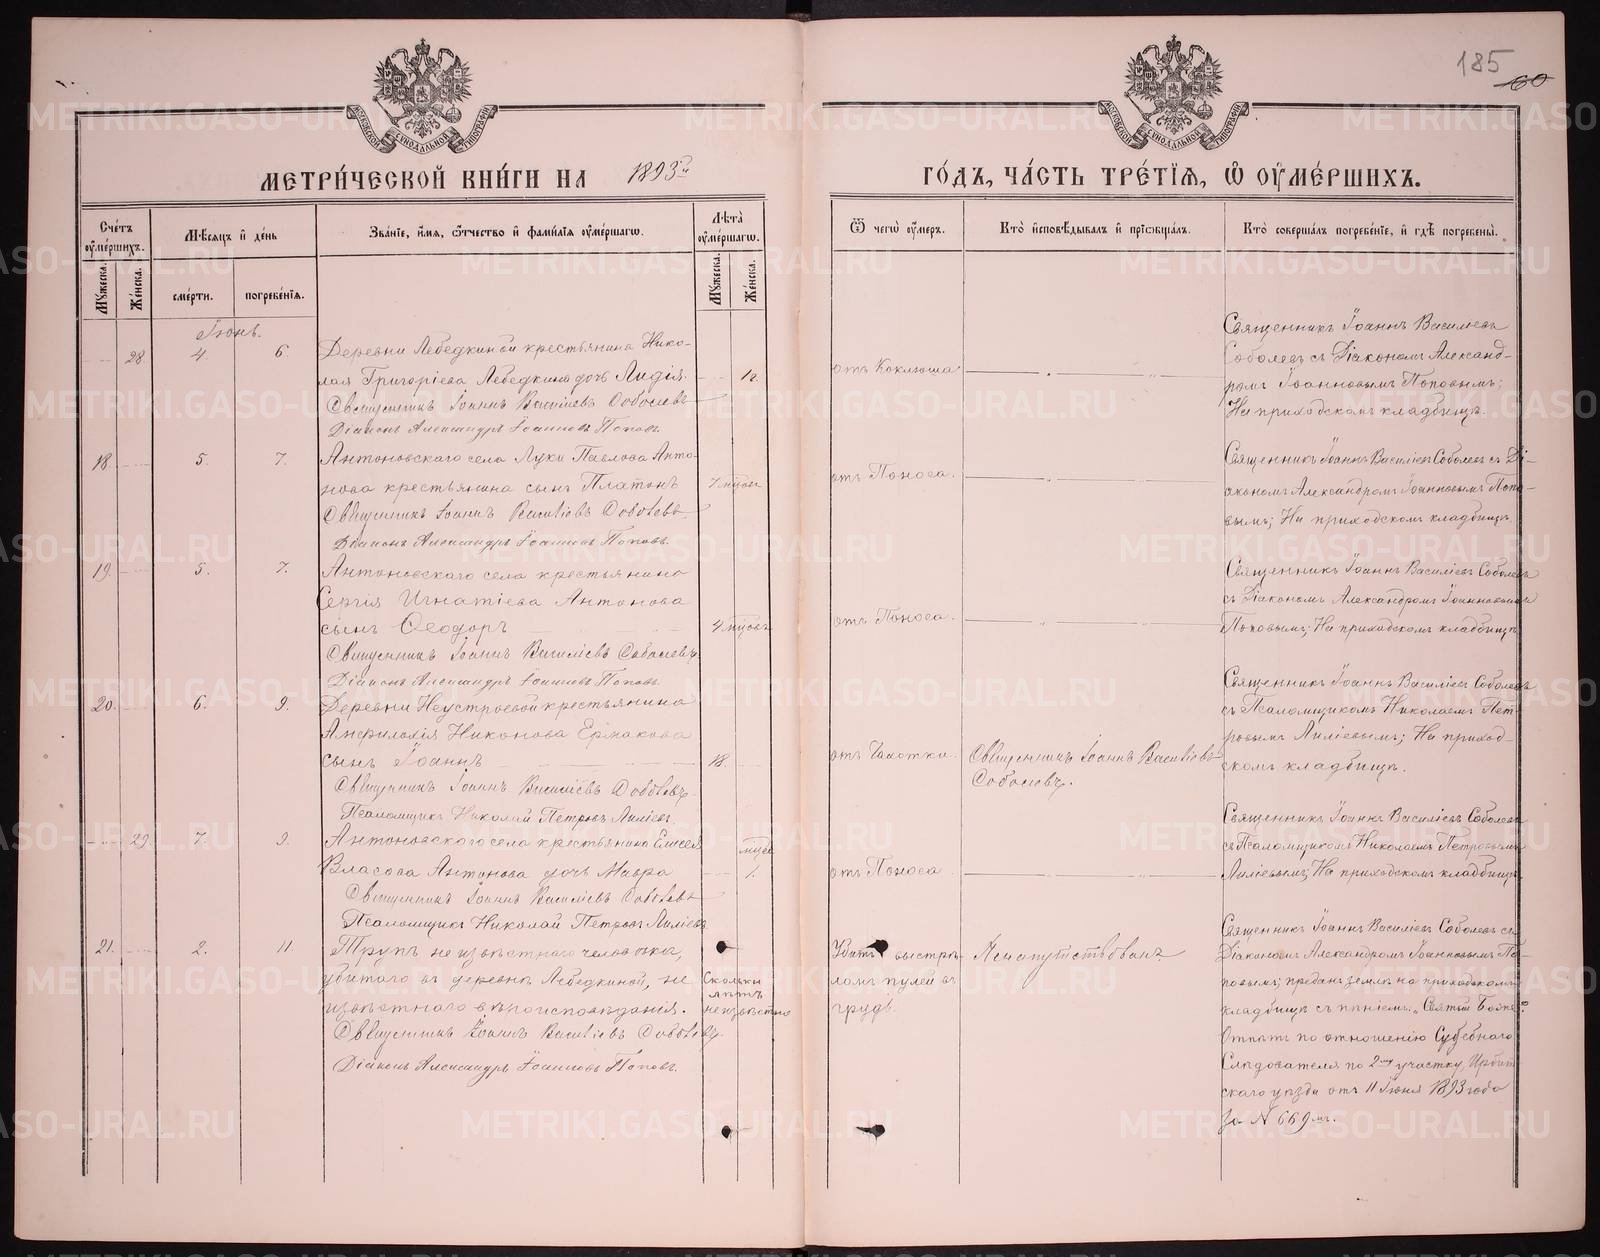 185
60
МОСКОВСКОЙ СѴНОДАЛЬНОЙ ТИПОГРАФІИ
МОСКОВСКОЙ СѴНОДАЛЬНОЙ ТИПОГРАФІИ
МЕТРИ́ЧЕСКОЙ КНИ́ГИ НА 1893й
ГО́ДЪ, ЧА́СТЬ ТРЕ́ТІѦ, Ѡ ОУ҆МЕ́РШИХЪ.
Сче́тъ оу҆ме́ршихъ.
Мꙋжеска.
Же́нска.
Мѣ́сѧцъ и҆ де́нь
сме́рти.
погребе́нїѧ.
Зва́нїе, и҆́мѧ, ѻ҆́тчество и҆ фамилїѧ оу҆ме́ршагѡ.
Лѣ́та оу҆ме́ршагѡ.
Мꙋжеска.
Же́нска.
Ѿ чегѡ̀ оу҆́меръ.
Кто̀ и҆сповѣ́дывалъ и҆ прїѡбща́лъ.
Кто̀ соверша́лъ погребе́нїе, и҆ гдѣ̀ погребены̀.
Іюнь.
28 4 6 Деревни Лебедкиной крестьянина Нико-
лая Григоріева Лебедкина дочь Лидія. 1г.
Священникъ Іоаннъ Василіевъ Соболевъ
Діаконъ Александръ Іоанновъ Поповъ.
отъ Коклюша
Священникъ Іоаннъ Васильевъ
Соболевъ съ Діакономъ Александ-
ромъ Іоанновымъ Поповымъ;
На приходскомъ кладбищѣ.
18. 5. 7. Антоновскаго села Луки Павлова Анто-
нова крестьянина сынъ Платонъ 7 мцовъ
Священникъ Іоаннъ Василіевъ Соболевъ
Діаконъ Александръ Іоанновъ Поповъ.
отъ Поноса.
Священникъ Іоаннъ Василіевъ Соболевъ съ Ді-
акономъ Александромъ Іоанновымъ Попо-
вымъ; На приходскомъ кладбищѣ
19. 5. 7. Антоновскаго села крестьянина
Сергія Игнатіева Антонова
сынъ Ѳеодоръ 4 мцовъ
Священникъ Іоаннъ Василіевъ Соболевъ
Діаконъ Александръ Іоанновъ Поповъ
отъ Поноса.
Священникъ Іоаннъ Василіевъ Соболевъ
съ Діакономъ Александромъ Іоанновымъ
Поповымъ; На приходскомъ кладбищѣ
20. 6. 9. Деревни Неустроевой крестьянина
Амфилохія Никонова Ермакова
сынъ Іоаннъ 18.
Священникъ Іоаннъ Василіевъ Соболевъ
Псаломщикъ Николай Петровъ Лиліевъ.
отъ Чахотки.
Священникъ Іоаннъ Василіевъ
Соболевъ.
Священникъ Іоаннъ Василіевъ Соболевъ
съ Псаломщикомъ Николаемъ Пет-
ровымъ Лиліевымъ; На приход-
скомъ кладбищѣ.
29. 7. 9. Антоновскаго села крестьянина Елисея
Власова Антонова дочь Мавра мцъ 1.
Священникъ Іоаннъ Василіевъ Соболевъ
Псаломщикъ Николай Петровъ Лиліевъ
отъ Поноса
Священникъ Іоаннъ Василіевъ Соболевъ
съ Псаломщикомъ Николаемъ Петровымъ
Лиліевымъ; На приходскомъ кладбищѣ
21. 2. 11. Трупъ неизвѣстнаго человѣка,
убитаго въ деревнѣ Лебедкиной, не
извѣстнаго вѣроисповѣданія.
Священникъ Іоаннъ Василіевъ Соболевъ.
Діаконъ Александръ Іоанновъ Поповъ.
Сколько
лѣтъ
неизвѣстно
Убитъ выстрѣ-
ломъ пулей въ
грудь.
Ненапутствованъ
Священникъ Іоаннъ Василіевъ Соболевъ съ
Діакономъ Александромъ Іоанновымъ По-
повымъ; преданъ землѣ на приходскомъ
кладбищѣ съ пѣніемъ: „Святый Боже".
Отпѣтъ по отношенію Судебнаго
Слѣдователя по 2му участку, Ирбит-
скаго уѣзда отъ 11 Іюня 1893 года
за № 669мъ.
METRIKI.GASO-URAL.RU